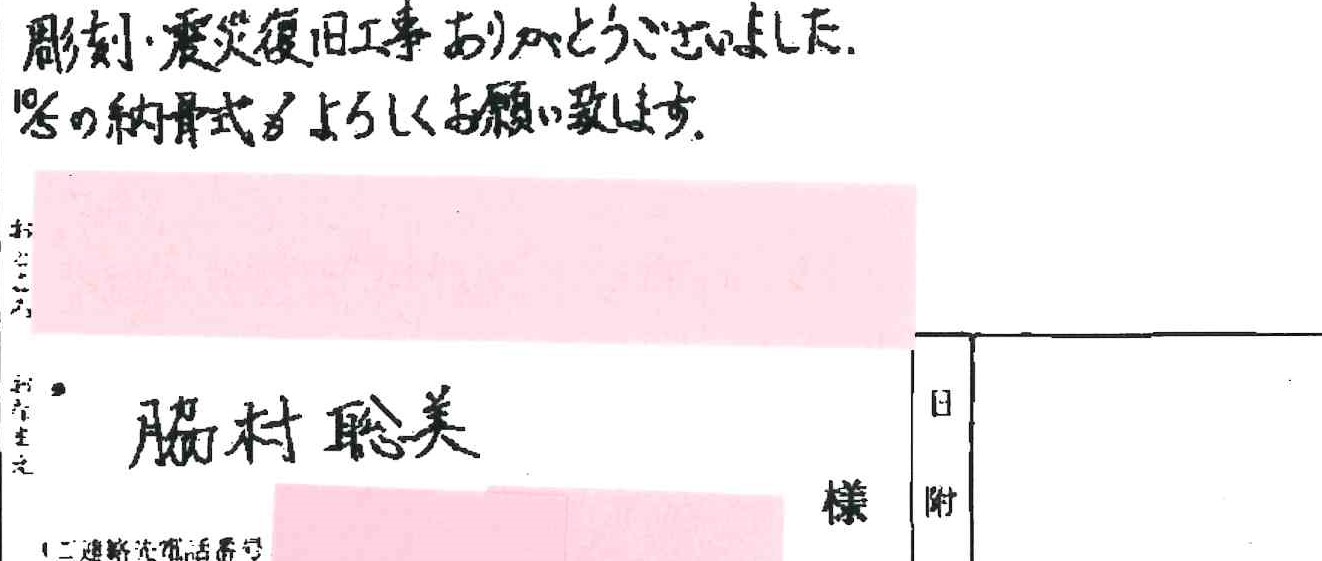 彫刻・震災復旧工事ありがとうございました.
10/5の納骨式もよろしくお願い致します.
おところ
おなまえ
脇村聡美
様
日附
(ご連絡先電話番号